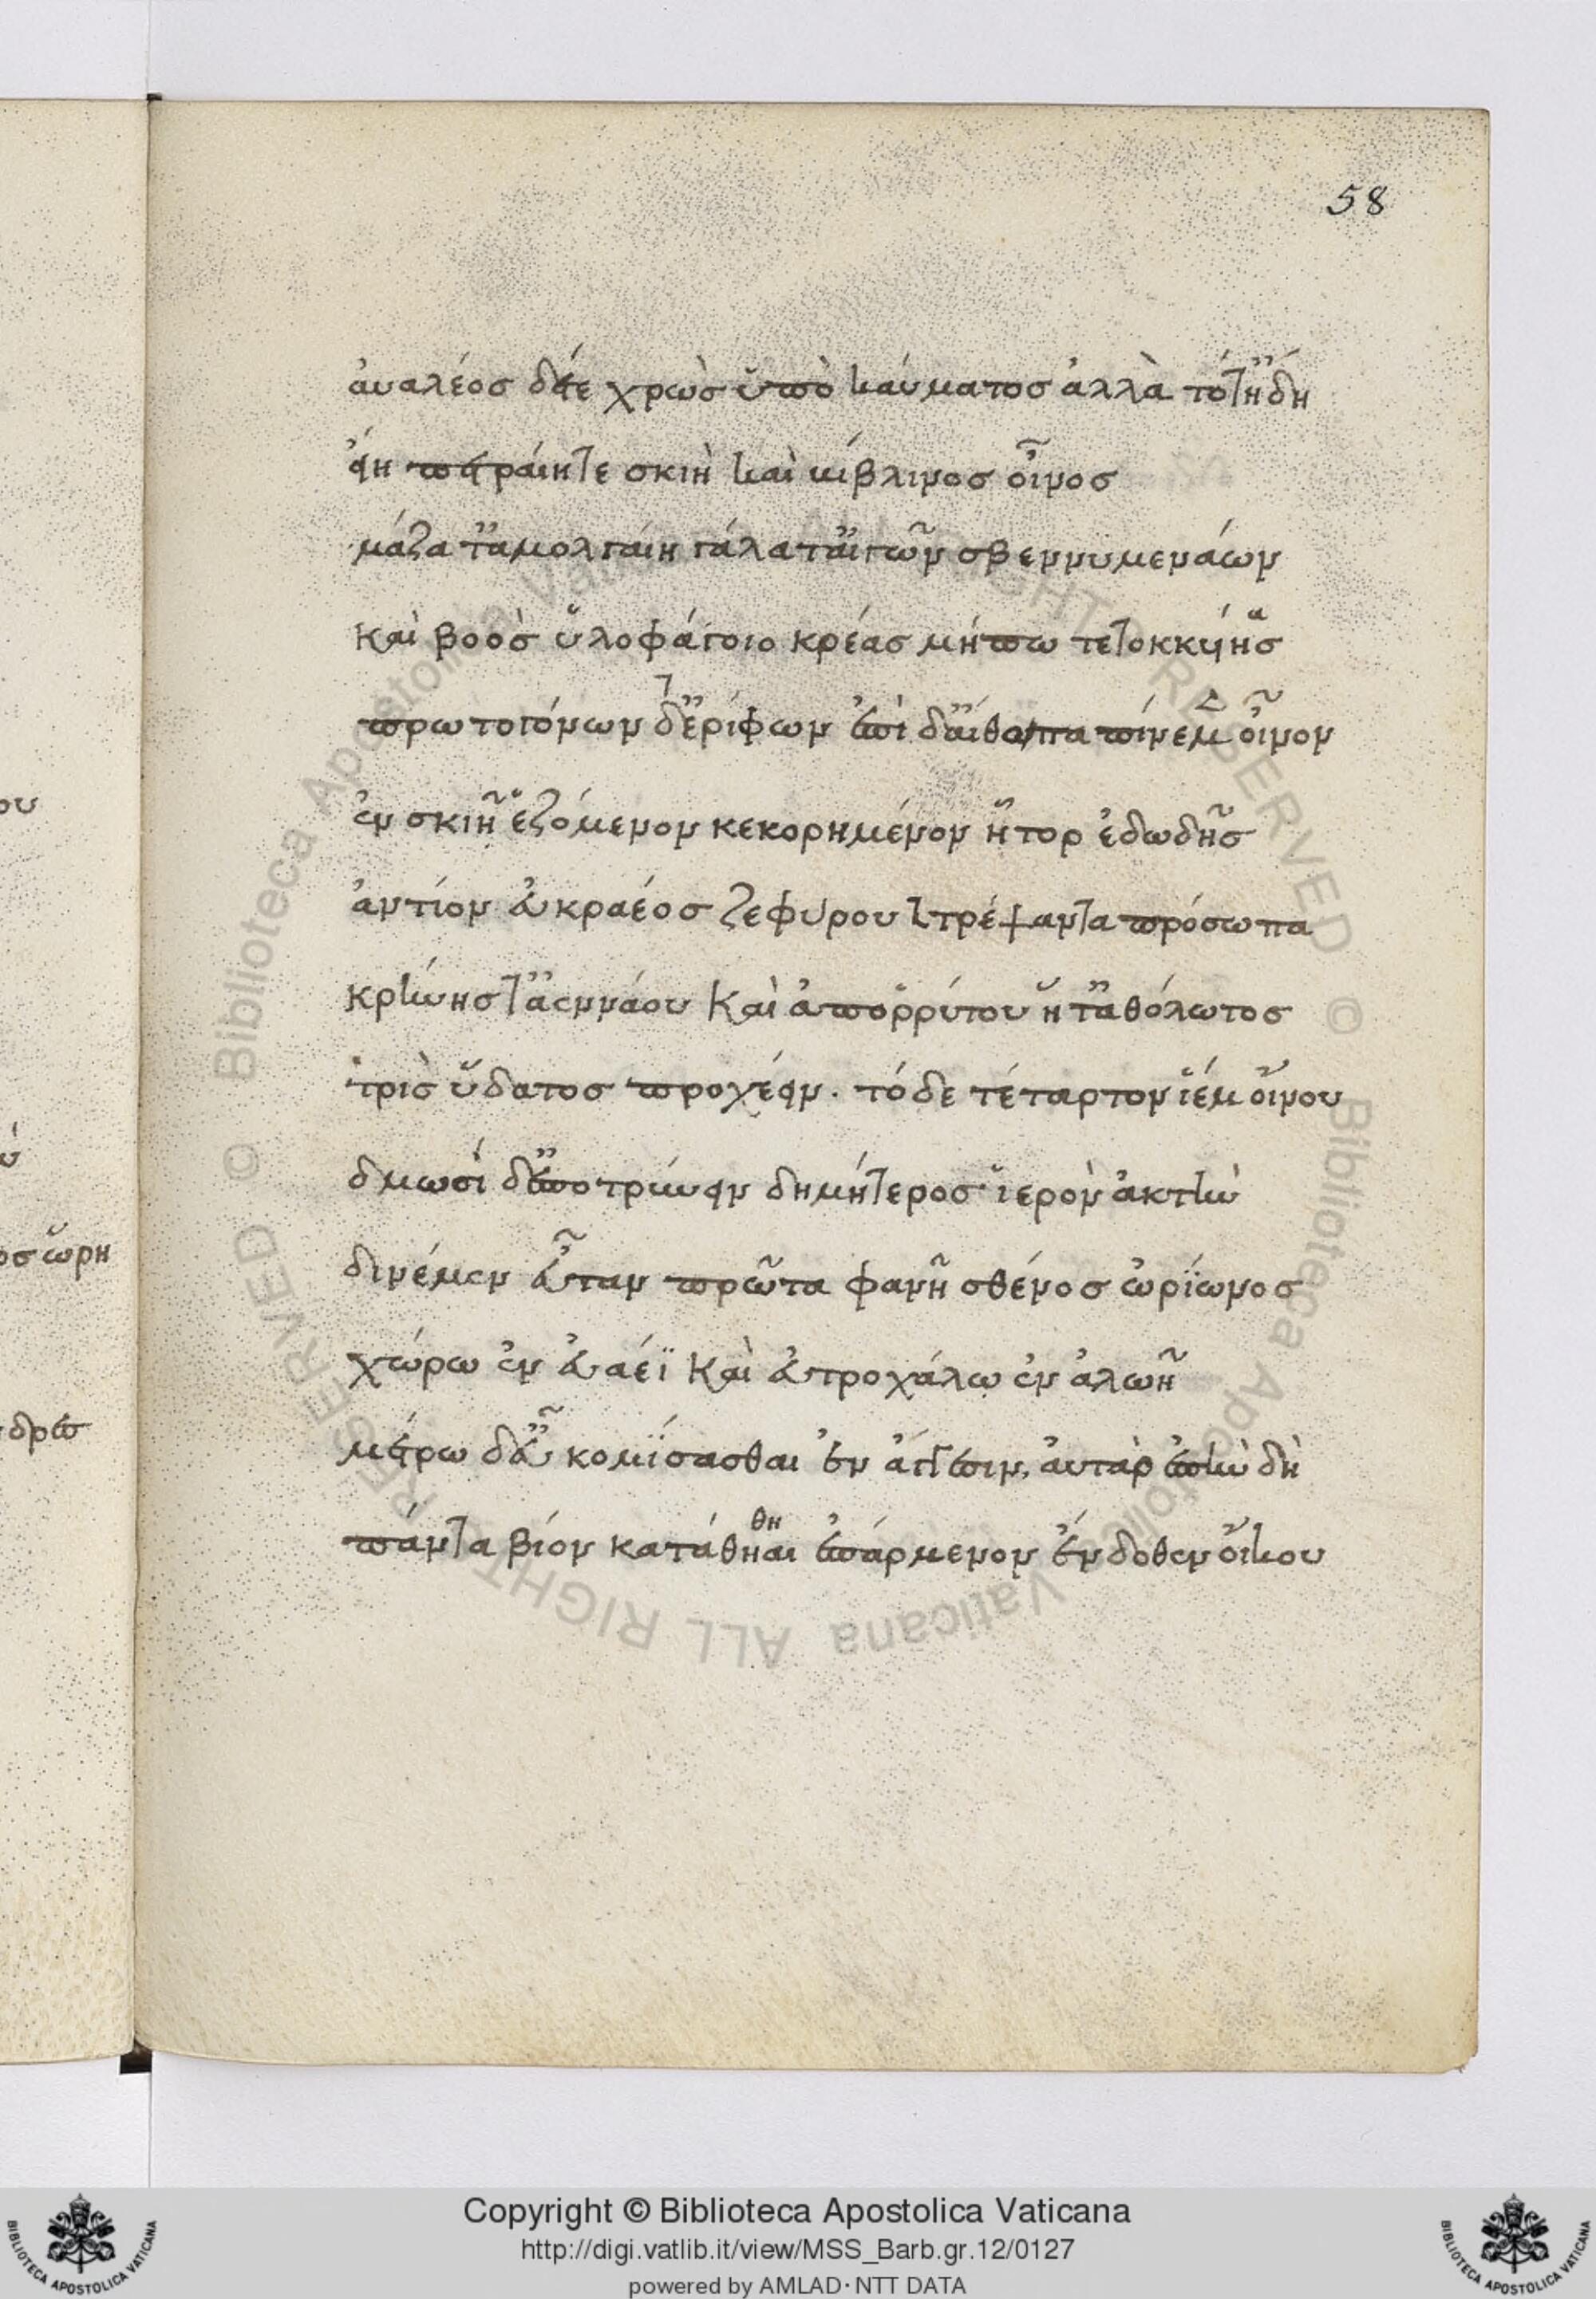 58
ἀυαλέοσ δέτε χρὼσ ὑπὸ καύματοσ ἀλλὰ τότ' ἤδη
εἴη πετραίητε σκιὴ καὶ κίβλινοσ οἶνοσ
μάζα τ' ἀμολγαίη γάλα τ' αἰγῶν σβεννυμενάων
καὶ βοὸσ ὑλοφάγοιο κρέασ μήπω τετοκκυίησ
πρωτογόνων δ' ἐρίφων ἐπὶ δ' αἴθοπα πίνεμεν οἶνον
ἐν σκιῇ ἑζόμενον κεκορημένον ἦτορ ἐδωδῆσ
ἀντίον εὐκραέοσ ζεφύρου στρέψαντα πρόσωπα
κρήνησ τ' ἀεννάου καὶ ἀπορρύτου ἥ τ' ἀθόλωτοσ
τρὶσ ὕδατοσ προχέειν. τόδε τέταρτον ἱέμεν οἴνου
δμωσὶ δ' ἐποτρύνειν δημήτεροσ ἱερὸν ἀκτὴν
δινέμεν εὖταν πρῶτα φανῇ σθένοσ ὠρίωνοσ
χώρω ἐν εὐαέϊ καὶ εὐτροχάλω ἐν ἀλωῇ
μέτρω δ' εὖ κομίσασθαι ἐν ἄγγεσιν, ἀυτὰρ ἐπὴν δὴ
πάντα βίον κατάθηαι ἐπάρμενον ἔνδοθεν οἴκου
θη
ου
οσ ὥρη
δρω
Copyright © Biblioteca Apostolica Vaticana
http://digi.vatlib.it/view/MSS_Barb.gr.12/0127
powered by AMLAD·NTT DATA
BIBLIOTECA APOSTOLICA VATICANA
BIBLIOTECA APOSTOLICA VATICANA
© Biblioteca Apostolica Vaticana ALL RIGHTS RESERVED
© Biblioteca Apostolica Vaticana ALL RIGHTS RESERVED